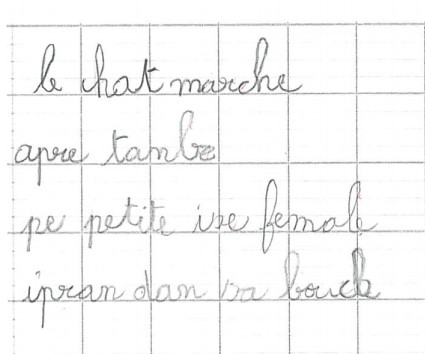 le chat marche
apre tambe
pe petite ise female
ipran dan sa bouch